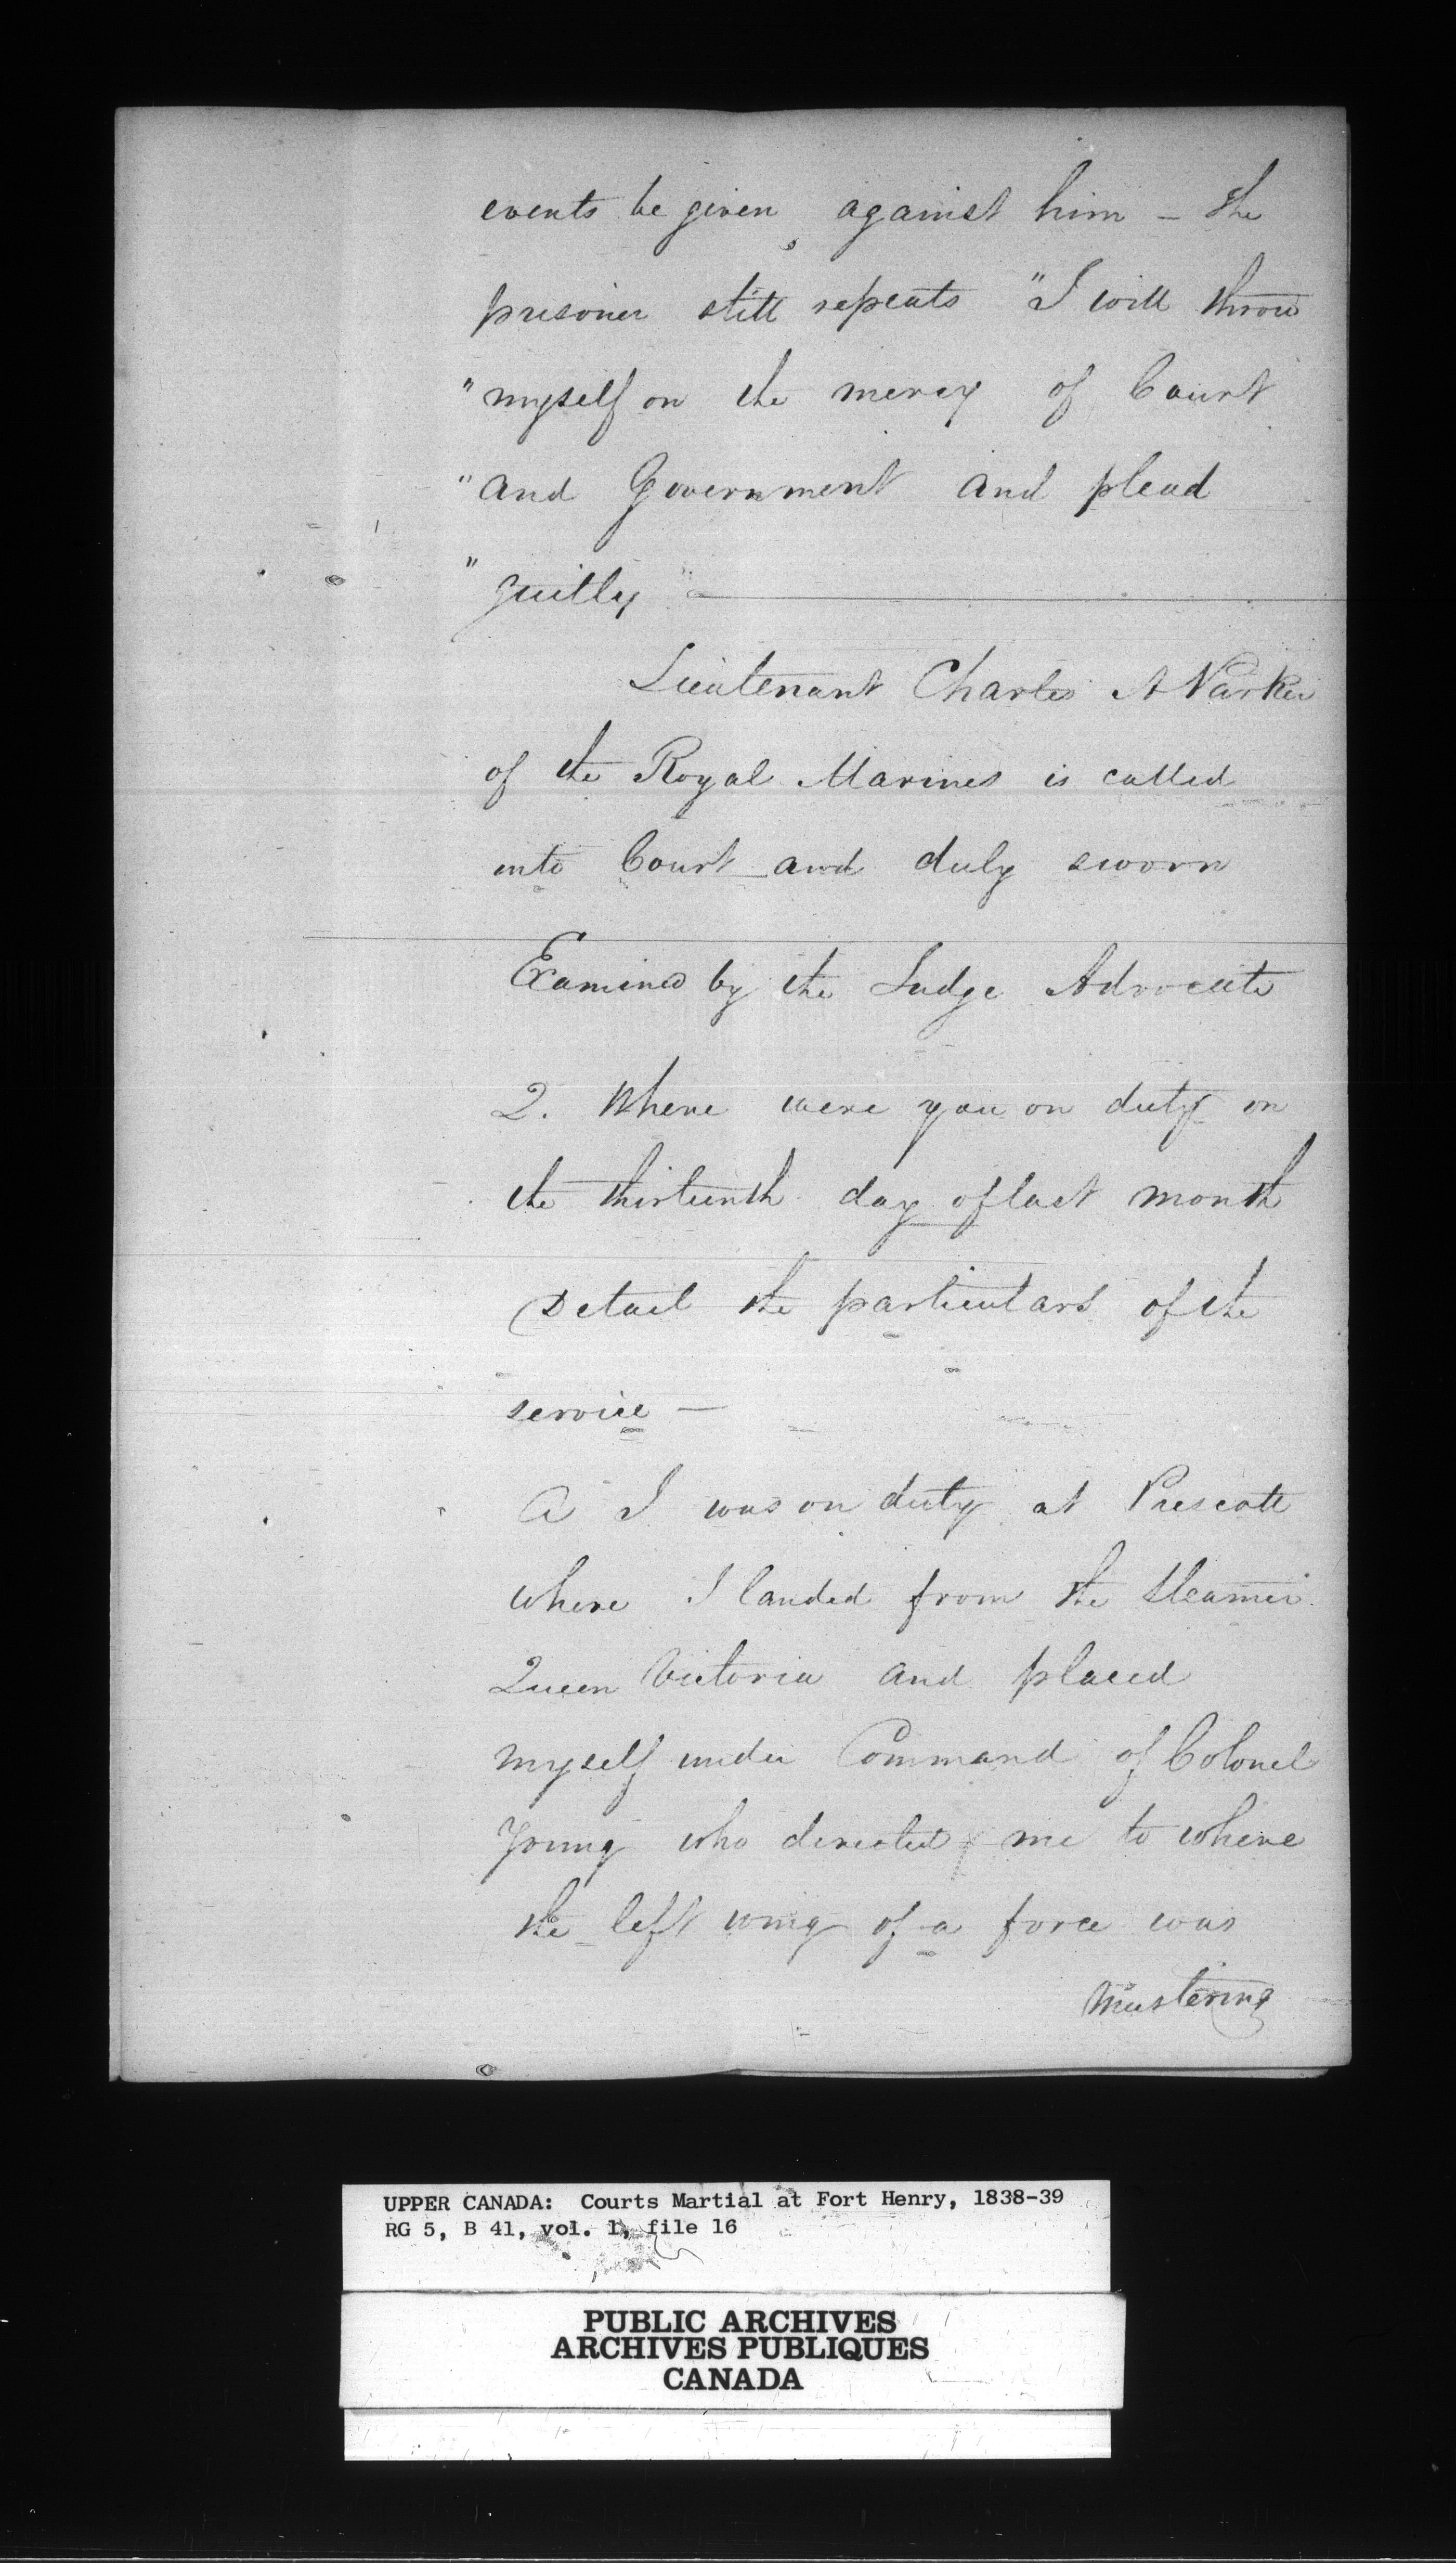 events be given against him – the
prisoner still repeats "I will throw
"myself on the mercy of Court
"and Government and plead
"guilty"
Lieutenant Charles A Parker
of the Royal Marines is called
into Court and duly sworn
Examined by the Judge Advocate
Q. Where were you on duty on
the thirteenth day of last month
Detail the particulars of the
service –
A I was on duty at Prescott
where I landed from the Steamer
Queen Victoria and placed
myself under Command of Colonel
Young who directed me to where
the left wing of a force was
Mustering
UPPER CANADA: Courts Martial at Fort Henry, 1838-39
RG 5, B 41, vol. 1, file 16
PUBLIC ARCHIVES
ARCHIVES PUBLIQUES
CANADA